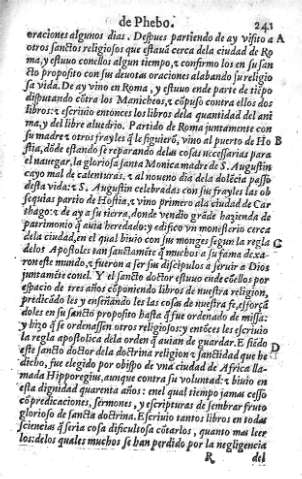 de Phebo. 241
oraciones algunos dias. Despues partiendo de ay visito a A
otros sanctos religiosos que estauã cerca dela ciudad de Ro
ma, y estuuo conellos algun tiempo, z confirmo los en su san
cto proposito con sus deuotas oraciones alabando su religio
sa vida. De ay vino en Roma, y estuuo ende parte de tiẽpo
disputando cõtra los Manicheos, z cõpuso contra ellos dos
libros: z escriuio entonces los libros dela quantidad del ani
ma, y del libre aluedrio. Partido de Roma juntamente con
su madre z otros frayles q̃ le siguierõ, vino al puerto de Ho B
stia, dõde estãdo se reparando delas cosas necessarias para
el nauegar, la gloriosa santa Monica madre de S. Augustin
cayo mal de calenturas. z al noueno dia dela dolẽcia passo
desta vida: z S. Augustin celebradas con sus frayles las ob
sequias partio de Hostia, z vino primero ala ciudad de Car
thago: z de ay a su tierra, donde vendio grãde hazienda de
patrimonio q̃ auia heredado: y edifico vn monesterio cerca
dela ciudad, en el qual biuio con sus monges segun la regla C
delos Apostoles tan sanctamẽte q̃ muchos a su fama dexa-
ron este mundo, z fueron a ser sus discipulos a seruir a Dios
juntamẽte conel. Y el sancto doctor estuuo ende cõellos por
espacio de tres años cõponiendo libros de nuestra religion,
predicãdo les y enseñãndo les las cosas de nuestra fe, esforçã
doles en su sancto proposito hasta q̃ fue ordenado de missa:
y hizo q̃ se ordenassen otros religiosos: y entõces les escriuio
la regla apostolica dela orden q̃ auian de guardar. E siẽdo D
este sancto doctor dela doctrina religion z sanctidad que he
dicho, fue elegido por obispo de vna ciudad de Africa lla-
mada Hipporegius, aunque contra su voluntad: z biuio en
esta dignidad quarenta años: enel qual tiempo jamas cesso
cõ predicaciones, sermones, y escripturas de sembrar fruto
glorioso de sancta doctrina. Escriuio tantos libros en todas
sciencias q̃ seria cosa dificultosa cõtarlos, quanto mas leer
los: delos quales muchos se han perdido por la negligencia
R del